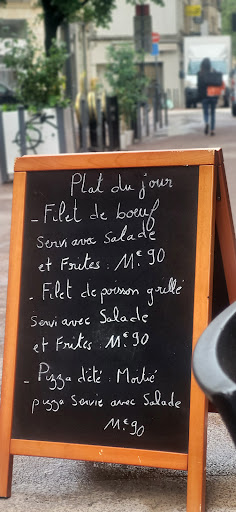 Plat du jour
- Filet de bœuf
Servi avec Salade
et Frites : 11€90
- Filet de poisson grillé
Servi avec Salade
et Frites : 11€90
- Pizza d'été : Moitié
pizza Servie avec Salade
11€90